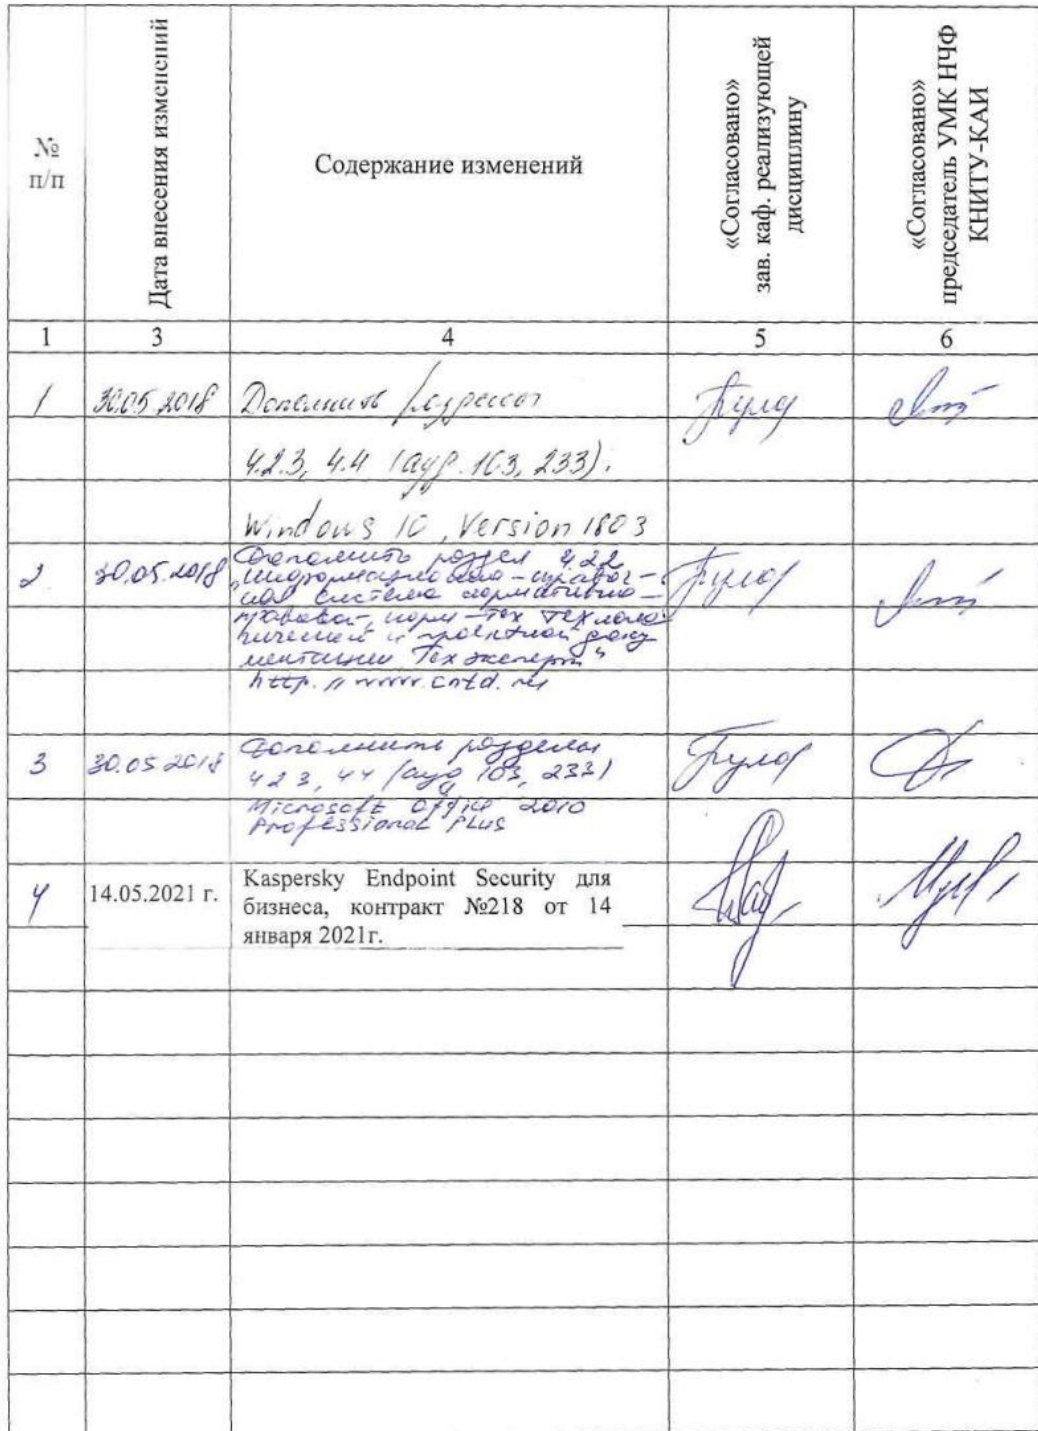 №
п/п
Дата внесения изменений
Содержание изменений
«Согласовано»
зав. каф. реализующей
дисциплину
«Согласовано»
председатель УМК НЧФ
КНИТУ-КАИ
1 3 4 5 6
1 30.05.2018 Дополнить разделы
4.2.3, 4.4 (ауд. 103, 233).
Windows 10, Version 1803
2 30.05.2018 Дополнить раздел 4.2.2
"Информационно-справоч-
ная система нормативно-
правовой, норм-тех техноло
гической и проектной доку
ментации Техэксперт"
http://www.cntd.ru
3 30.05.2018 Дополнить разделы
4.2.3, 4.4 (ауд 103, 233)
Microsoft Office 2010
Professional Plus
4 14.05.2021 г. Kaspersky Endpoint Security для
бизнеса, контракт №218 от 14
января 2021г.